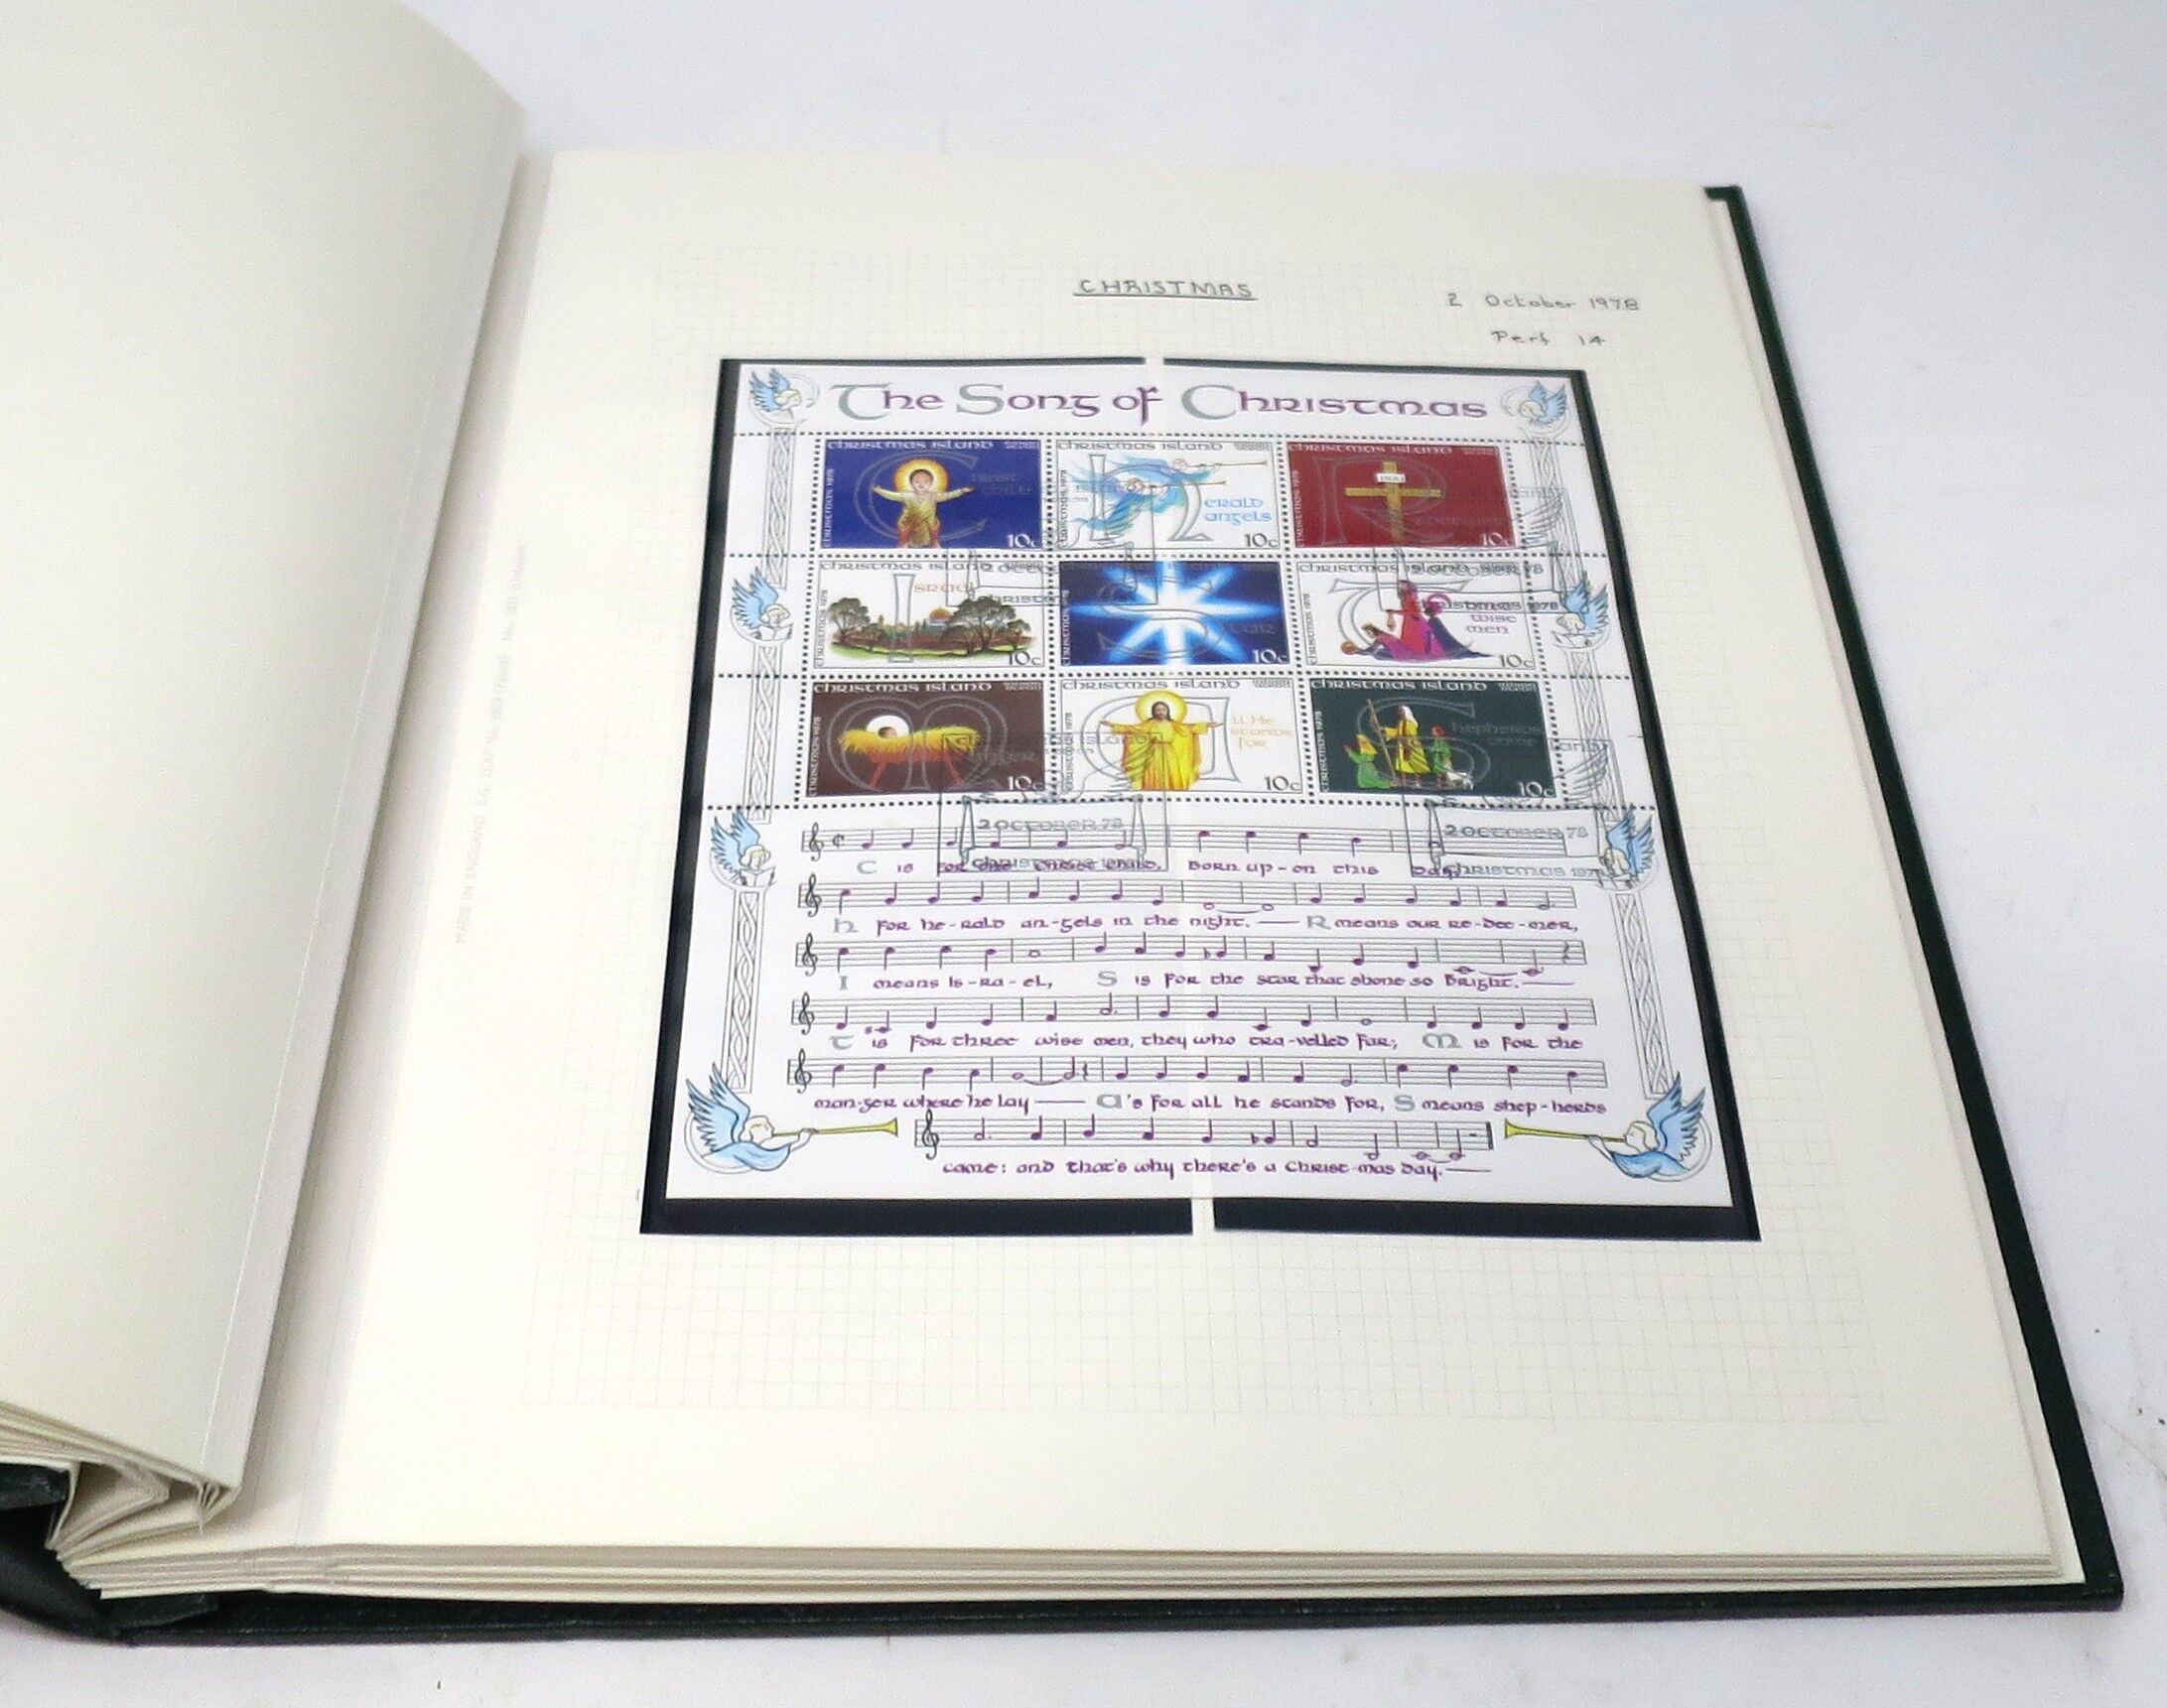 CHRISTMAS
2 October 1978
Perf 14
The Song of Christmas
christmas island
christmas island
christmas island
christmas 1978
christ child
10c
christmas 1978
erald angels
10c
christmas 1978
10c
christmas island
christmas island
christmas 1978
srael
10c
tar
10c
christmas 1978
wise men
10c
2 OCTOBER 78
christmas 1978
christmas island
christmas island
christmas island
christmas 1978
anger
10c
christmas 1978
ll He stands for
10c
christmas 1978
hepherds came
10c
2 OCTOBER 78
2 OCTOBER 78
christmas 1978
christmas 1978
C is for the Christ child, Born up-on this Day,
h for he-rald an-gels in the night. — R means our re-dee-mer,
I means Is-ra-el, S is for the star that shone so bright. —
T is for three wise men, they who tra-velled far; M is for the
man-ger where he lay — A's for all he stands for, S means shep-herds
came: and that's why there's a Christ-mas day. —
MADE IN ENGLAND